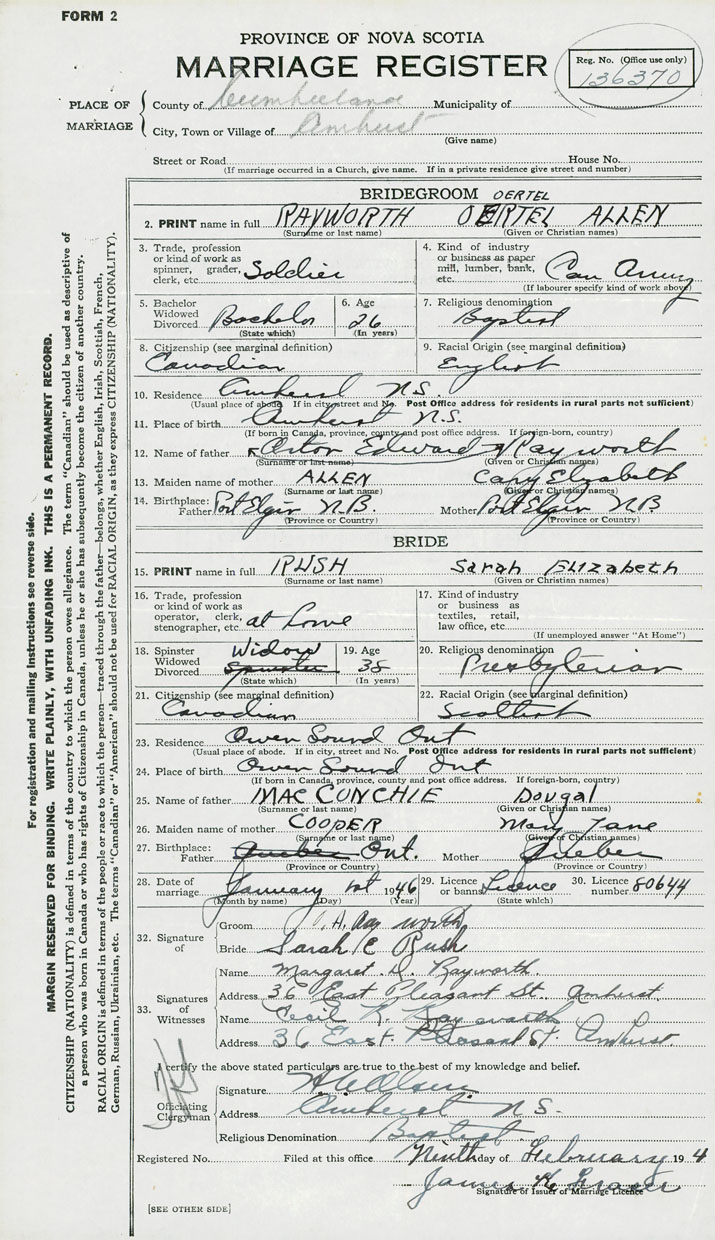 FORM 2
PROVINCE OF NOVA SCOTIA
MARRIAGE REGISTER
Reg. No. (Office use only)
136370
PLACE OF MARRIAGE
County of Cumberland Municipality of
City, Town or Village of Amherst
(Give name)
Street or Road House No.
(If marriage occurred in a Church, give name. If in a private residence give street and number)
BRIDEGROOM OERTEL
2. PRINT name in full RAYWORTH OERTEL ALLEN
(Surname or last name) (Given or Christian names)
3. Trade, profession or kind of work as spinner, grader, clerk, etc. Soldier
4. Kind of industry or business as paper mill, lumber, bank, etc. Can Army
(If labourer specify kind of work above)
5. Bachelor Widowed Divorced Bachelor
(State which)
6. Age 26
(In years)
7. Religious denomination Baptist
8. Citizenship (see marginal definition) Canadian
9. Racial Origin (see marginal definition) English
10. Residence Amherst N.S.
(Usual place of abode. If in city, street and No. Post Office address for residents in rural parts not sufficient)
11. Place of birth Amherst N.S.
(If born in Canada, province, county and post office address. If foreign-born, country)
12. Name of father Edward Rayworth
(Surname or last name) (Given or Christian names)
13. Maiden name of mother ALLEN Elizabeth
(Surname or last name) (Given or Christian names)
14. Birthplace: Father Port Elgin N.B. Mother Port Elgin N.B
(Province or Country) (Province or Country)
BRIDE
15. PRINT name in full RUSH Sarah Elizabeth
(Surname or last name) (Given or Christian names)
16. Trade, profession or kind of work as operator, clerk, stenographer, etc. at home
17. Kind of industry or business as textiles, retail, law office, etc.
(If unemployed answer "At Home")
18. Spinster Widowed Divorced Widow Spinster
(State which)
19. Age 38
(In years)
20. Religious denomination Presbyterian
21. Citizenship (see marginal definition) Canadian
22. Racial Origin (see marginal definition) Scottish
23. Residence Owen Sound Ont
(Usual place of abode. If in city, street and No. Post Office address for residents in rural parts not sufficient)
24. Place of birth Owen Sound Ont
(If born in Canada, province, county and post office address. If foreign-born, country)
25. Name of father MAC CONCHIE Dougal
(Surname or last name) (Given or Christian names)
26. Maiden name of mother COOPER Mary Jane
(Surname or last name) (Given or Christian names)
27. Birthplace: Father Quebec Ont. Mother Quebec
(Province or Country) (Province or Country)
28. Date of marriage January 1st 1946
(Month by name) (Day) (Year)
29. Licence or banns Licence
(State which)
30. Licence number 80644
32. Signature of
Groom A. Rayworth
Bride Sarah E Rush
33. Signatures of Witnesses
Name Margaret D. Rayworth.
Address 36 East Pleasant St. Amherst.
Name Cecil R. Rayworth
Address 36 East Pleasant St. Amherst
I certify the above stated particulars are true to the best of my knowledge and belief.
Officiating Clergyman
Signature
Address Amherst N.S.
Religious Denomination Baptist
Registered No. Filed at this office Ninth day of February 194
James K. Fraser
Signature of Issuer of Marriage Licence
[SEE OTHER SIDE]
For registration and mailing instructions see reverse side.
MARGIN RESERVED FOR BINDING. WRITE PLAINLY, WITH UNFADING INK. THIS IS A PERMANENT RECORD.
CITIZENSHIP (NATIONALITY) is defined in terms of the country to which the person owes allegiance. The term "Canadian" should be used as descriptive of
a person who was born in Canada or who has rights of Citizenship in Canada, unless he or she has subsequently become the citizen of another country.
RACIAL ORIGIN is defined in terms of the people or race to which the person—traced through the father—belongs, whether English, Irish, Scottish, French,
German, Russian, Ukrainian, etc. The terms "Canadian" or "American" should not be used for RACIAL ORIGIN, as they express CITIZENSHIP (NATIONALITY).